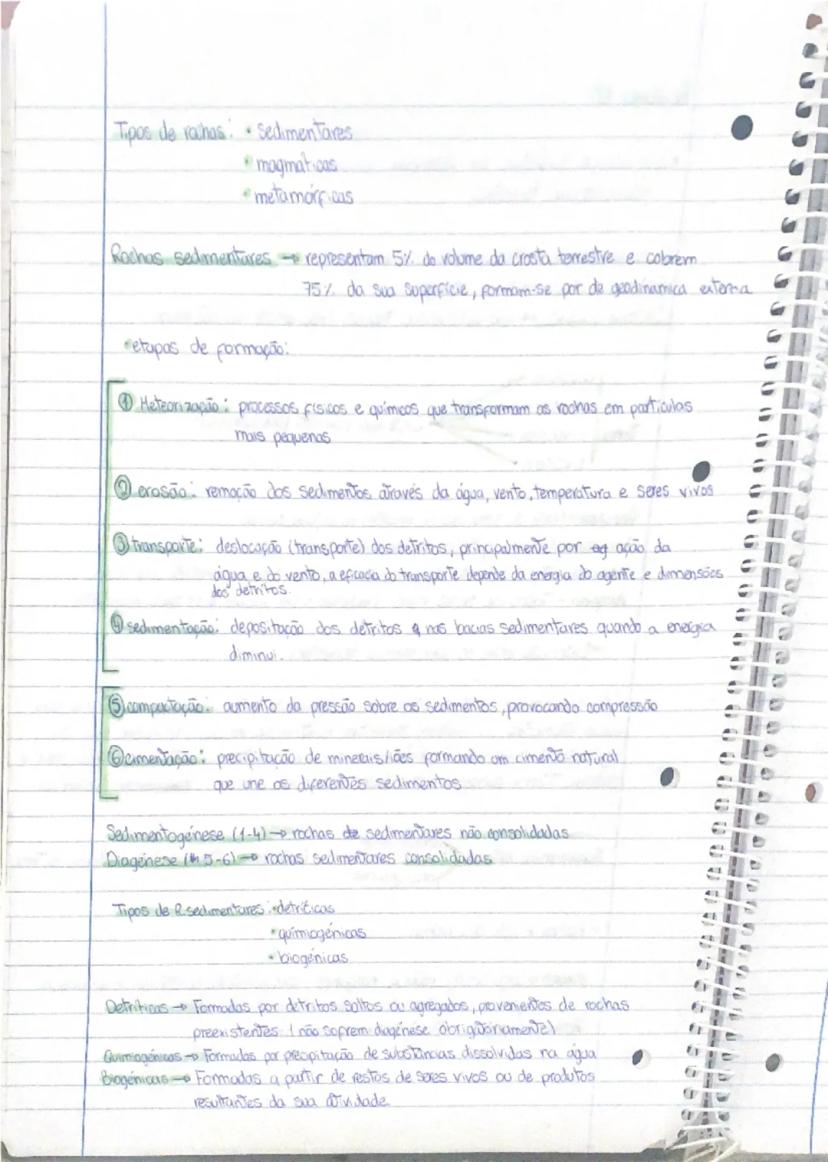 Tipos de rochas: • sedimentares
• magmáticas
• metamórficas
Rochas sedimentares → representam 5% do volume da crosta terrestre e cobrem
75% da sua superfície, formam-se por da geodinamica externa
• etapas de formação:
① Meteorização: processos físicos e químicos que transformam as rochas em partículas
mais pequenas
② erosão: remoção dos sedimentos através da água, vento, temperatura e seres vivos
③ transporte: deslocação (transporte) dos detritos, principalmente por ação da
água e do vento, a eficacia do transporte depende da energia do agente e dimensões
dos detritos.
④ sedimentação: depositação dos detritos nas bacias sedimentares quando a energia
diminui.
⑤ compactação: aumento da pressão sobre os sedimentos, provocando compressão
⑥ cimentação: precipitação de minerais/iões formando um cimento natural
que une os diferentes sedimentos
Sedimentogénese (1-4) → rochas sedimentares não consolidadas
Diagénese (5-6) → rochas sedimentares consolidadas
Tipos de R.sedimentares: • detríticas
• quimiogénicas
• biogénicas
Detríticas → Formadas por detritos soltos ou agregados, provenientes de rochas
preexistentes (não soprem diagénese obrigatóriamente)
Quimiogénicas → Formadas por precipitação de substâncias dissolvidas na água
Biogénicas → Formadas a partir de restos de seres vivos ou de produtos
resultantes da sua atividade.